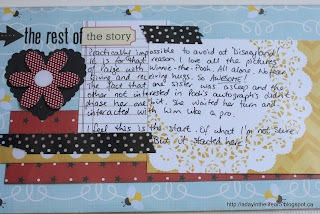 the rest of the story
Practically impossible to avoid at Disneyland
it is for that reason I love all the pictures
of Paige with Winnie-the-Pooh. All alone. Nothing
giving and receiving hugs. So AWESOME!
The fact that one sister was asleep and the
other not interested in Pooh's autograph didn't
phase her one bit. She waited her turn and
interacted with him like a pro.
I feel this is the start. Of what I'm not sure.
But it started here
http://adayinthelifeoro.blogspot.ca